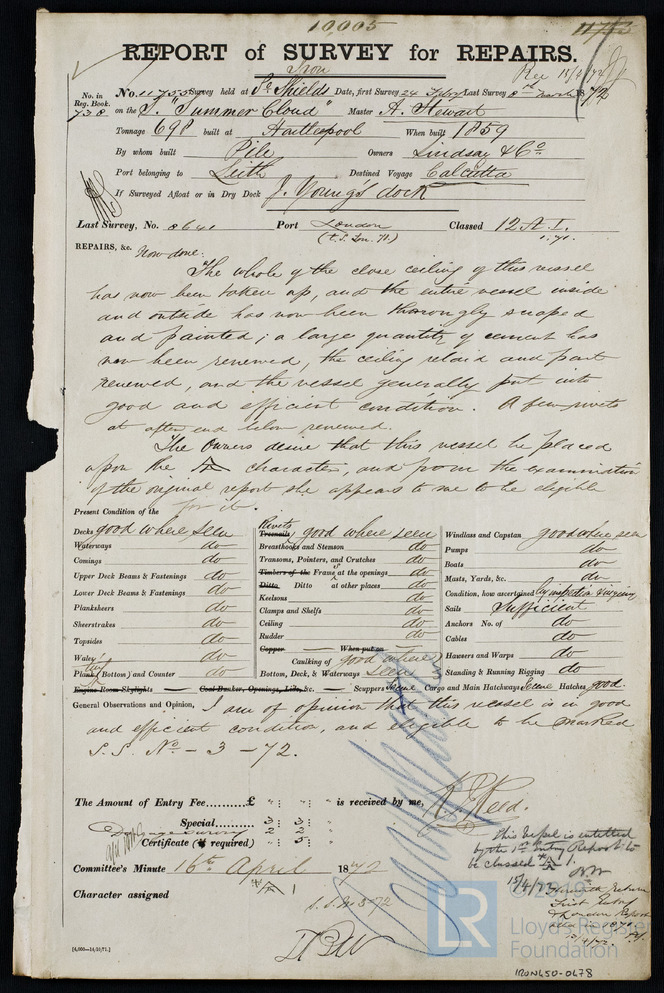 10,005
REPORT of SURVEY for REPAIRS.
Iron
No. in Reg. Book. 738
No. 11755 Survey held at So. Shields Date, first Survey 24 Febry Last Survey 8th March 1872
on the S. "Summer Cloud" Master A. Stewart
Tonnage 698 built at Hartlepool When built 1859
By whom built Pile Owners Lindsay & Co
Port belonging to Leith Destined Voyage Calcutta
If Surveyed Afloat or in Dry Dock J. Young's dock
Last Survey, No. 8641 Port London Classed 12 A 1.
(t.S. Lon. 71.) 1.71.
REPAIRS, &c. Now done:
The whole of the close ceiling of this vessel
has now been taken up, and the entire vessel inside
and outside has now been thorougly scraped
and painted; a large quantity of cement has
now been renewed, the ceiling relaid and part
renewed, and the vessel generally put into
good and efficient condition. A few rivets
at after end below renewed.
The Owners desire that this vessel be placed
upon the A character, and from the examination
of the original report she appears to me to be eligible
for it.
Present Condition of the
Decks good where seen
Waterways do
Comings do
Upper Deck Beams & Fastenings do
Lower Deck Beams & Fastenings do
Planksheers do
Sheerstrakes do
Topsides do
Wales do
Plank (Bottom) and Counter do
Rivets
Treenails good where seen
Breasthooks and Stemson do
Transoms, Pointers, and Crutches do
Timbers of the Frame at the openings do
Ditto Ditto at other places do
Keelsons do
Clamps and Shelfs do
Ceiling do
Rudder do
Copper — When put on
Caulking of good where
Bottom, Deck, & Waterways seen
Windlass and Capstan good where seen
Pumps do
Boats do
Masts, Yards, &c. do
Condition, how ascertained by inspection
Sails Sufficient
Anchors No. of do
Cables do
Hawsers and Warps do
Standing & Running Rigging do
Engine Room Skylights — Coal Bunker, Openings, Lids, &c. — Scuppers Cargo and Main Hatchways Hatches good.
General Observations and Opinion, I am of opinion that this vessel is in good
and efficient condition, and eligible to be marked
S.S. No - 3 - 72.
The Amount of Entry Fee..........£ " : " : " is received by me,
Special.......... 3 : 3 :
2 : 2 :
Certificate (if required) " : 5 :
Committee's Minute 16th April 1872
Character assigned A 1
S.S. No 3-72
This vessel is entitled
by the 1st Entry Report to
be classed A 1.
15/4/72
First Entry
& London Report
[4,000—14/10/71.]
© 2019
LR
Lloyd's Register
Foundation
IRON450-0678